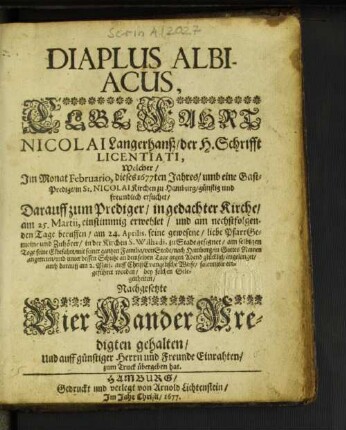 Scrin A/2027
DIAPLUS ALBI-
ACUS,
ELBE FAHRT
NICOLAI Langerhanß/ der H. Schrifft
LICENTIATI,
Welcher/
Im Monat Februario, dieses 1677ten Jahres/ umb eine Gast-
Predigt/ in St. NICOLAI Kirchen zu Hamburg/ günstig und
freundlich ersuchet/
Darauff zum Prediger/ in gedachter Kirche/
am 25. Martii, einstimmig erwehlet/ und am nechstfolgen-
den Tage beruffen/ am 24. Aprilis. seine gewesene/ liebe PfarrGe-
meine und Zuhörer/ in der Kirchen S. Wilhadi, zu Stade gesegnet/ am selbigen
Tage seine Elbfahrt/ mit seiner gantzen Familie/ von Stade/ nach Hamburg/ in Gottes Namen
angetreten/ und unter dessen Schutze an demselben Tage gegen Abend glücklich angelanget/
auch hierauff am 2. Maii, auff Christ Evangelische Weise/ solenniter ein-
geführet worden/ bey solchen Gele-
genheiten/
Nachgesetzte
Vier Wander Pre-
digten gehalten/
Und auff günstiger Herrn und Freunde Einrahten/
zum Truck übergeben hat.
HAMBURG/
Gedruckt und verlegt von Arnold Lichtenstein/
Im Jahr Christi/ 1677.